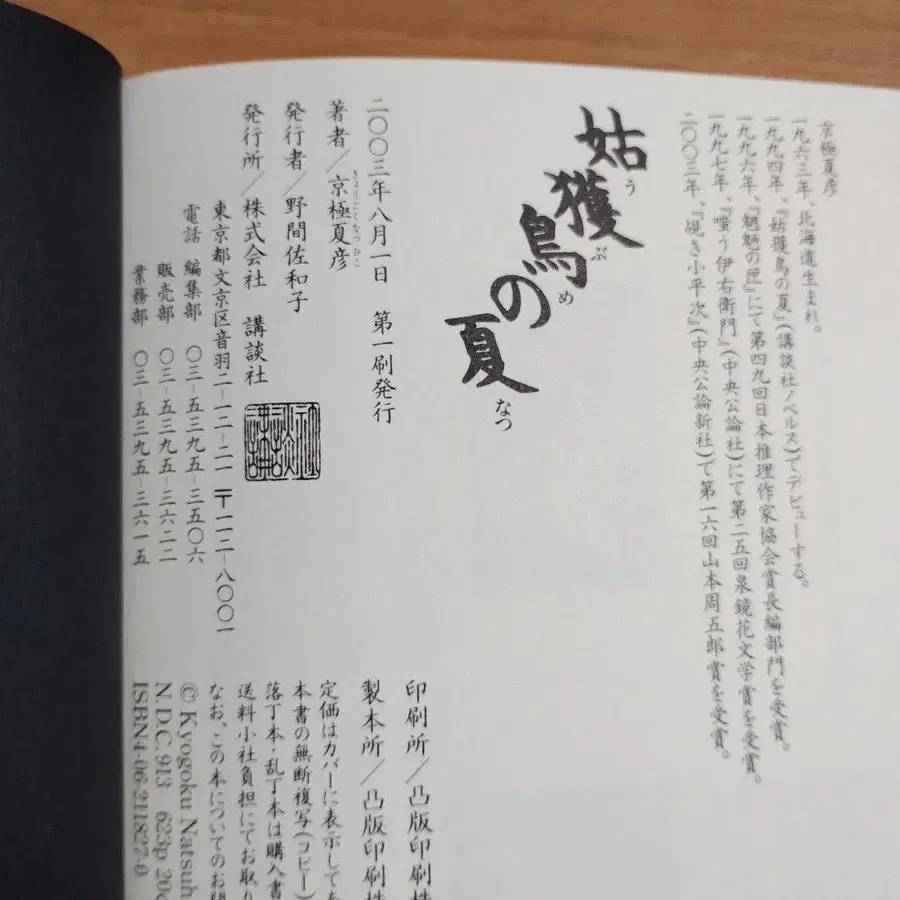 京極夏彦
一九六三年、北海道生まれ。
一九九四年、『姑獲鳥の夏』(講談社ノベルス)でデビューする。
一九九六年、『魍魎の匣』にて第四九回日本推理作家協会賞長編部門を受賞。
一九九七年、『嗤う伊右衛門』(中央公論社)にて第二五回泉鏡花文学賞を受賞。
二〇〇三年、『覘き小平次』(中央公論新社)で第一六回山本周五郎賞を受賞。
姑獲鳥の夏
うぶめ なつ
二〇〇三年八月一日 第一刷発行
著者/京極夏彦
きょうごくなつひこ
発行者/野間佐和子
発行所/株式会社 講談社
東京都文京区音羽二-一二-二一 〒一一二-八〇〇一
電話 編集部 〇三-五三九五-三五〇六
販売部 〇三-五三九五-三六二二
業務部 〇三-五三九五-三六一五
印刷所/凸版印刷株
製本所/凸版印刷株
定価はカバーに表示してあ
本書の無断複写(コピー)
落丁本・乱丁本は購入書
送料小社負担にてお取り
なお、この本についてのお問
© Kyogoku Natsuh
N.D.C. 913 623p 20c
ISBN4-06-211827-0